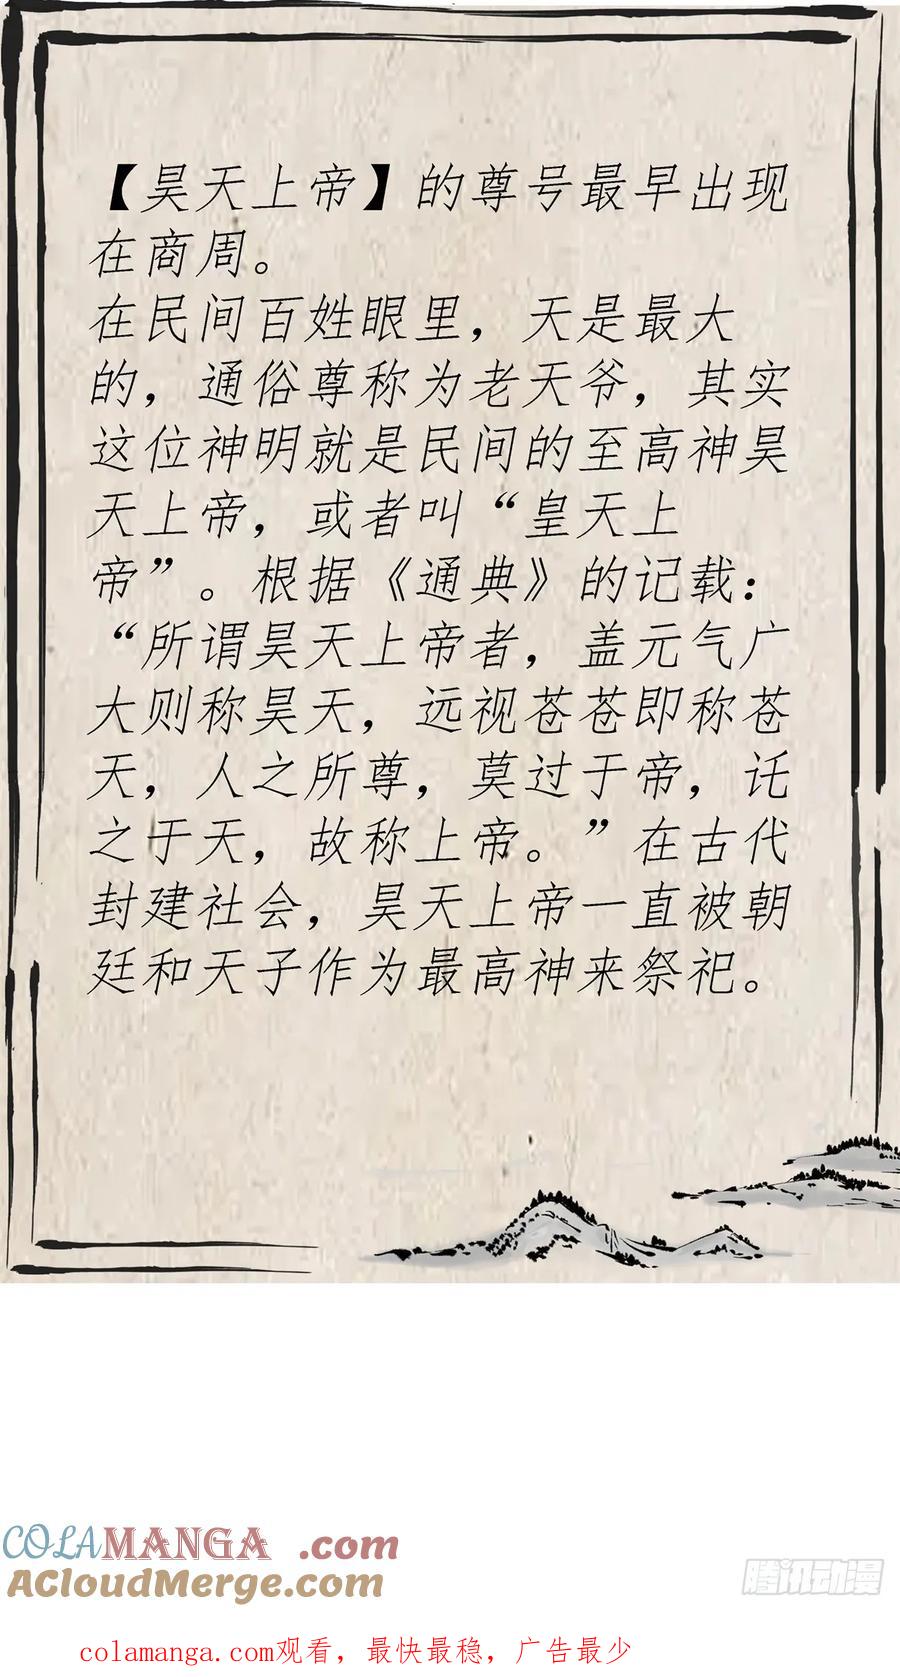 【昊天上帝】的尊号最早出现
在商周。
在民间百姓眼里，天是最大
的，通俗尊称为老天爷，其实
这位神明就是民间的至高神昊
天上帝，或者叫“皇天上
帝”。根据《通典》的记载：
“所谓昊天上帝者，盖元气广
大则称昊天，远视苍苍即称苍
天，人之所尊，莫过于帝，讬
之于天，故称上帝。”在古代
封建社会，昊天上帝一直被朝
廷和天子作为最高神来祭祀。
COLAMANGA.com
ACloudMerge.com
腾讯动漫
colamanga.com观看，最快最稳，广告最少